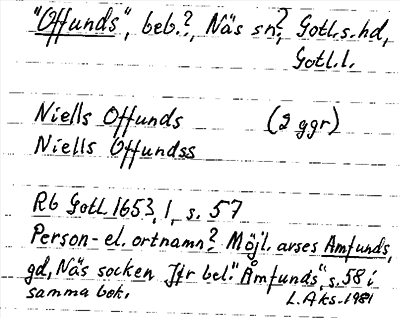 "Offunds", beb.?, Näs sn?, Gotl.s.hd,
Gotl.l.
Niells Offunds (2 ggr)
Niells Offundss
Rb Gotl. 1653, 1, s. 57
Person- el. ortnamn? Möjl. avses Amfunds,
gd, Näs socken Jfr bel. "Åmfunds", s. 58 i
samma bok. L. Aks. 1981